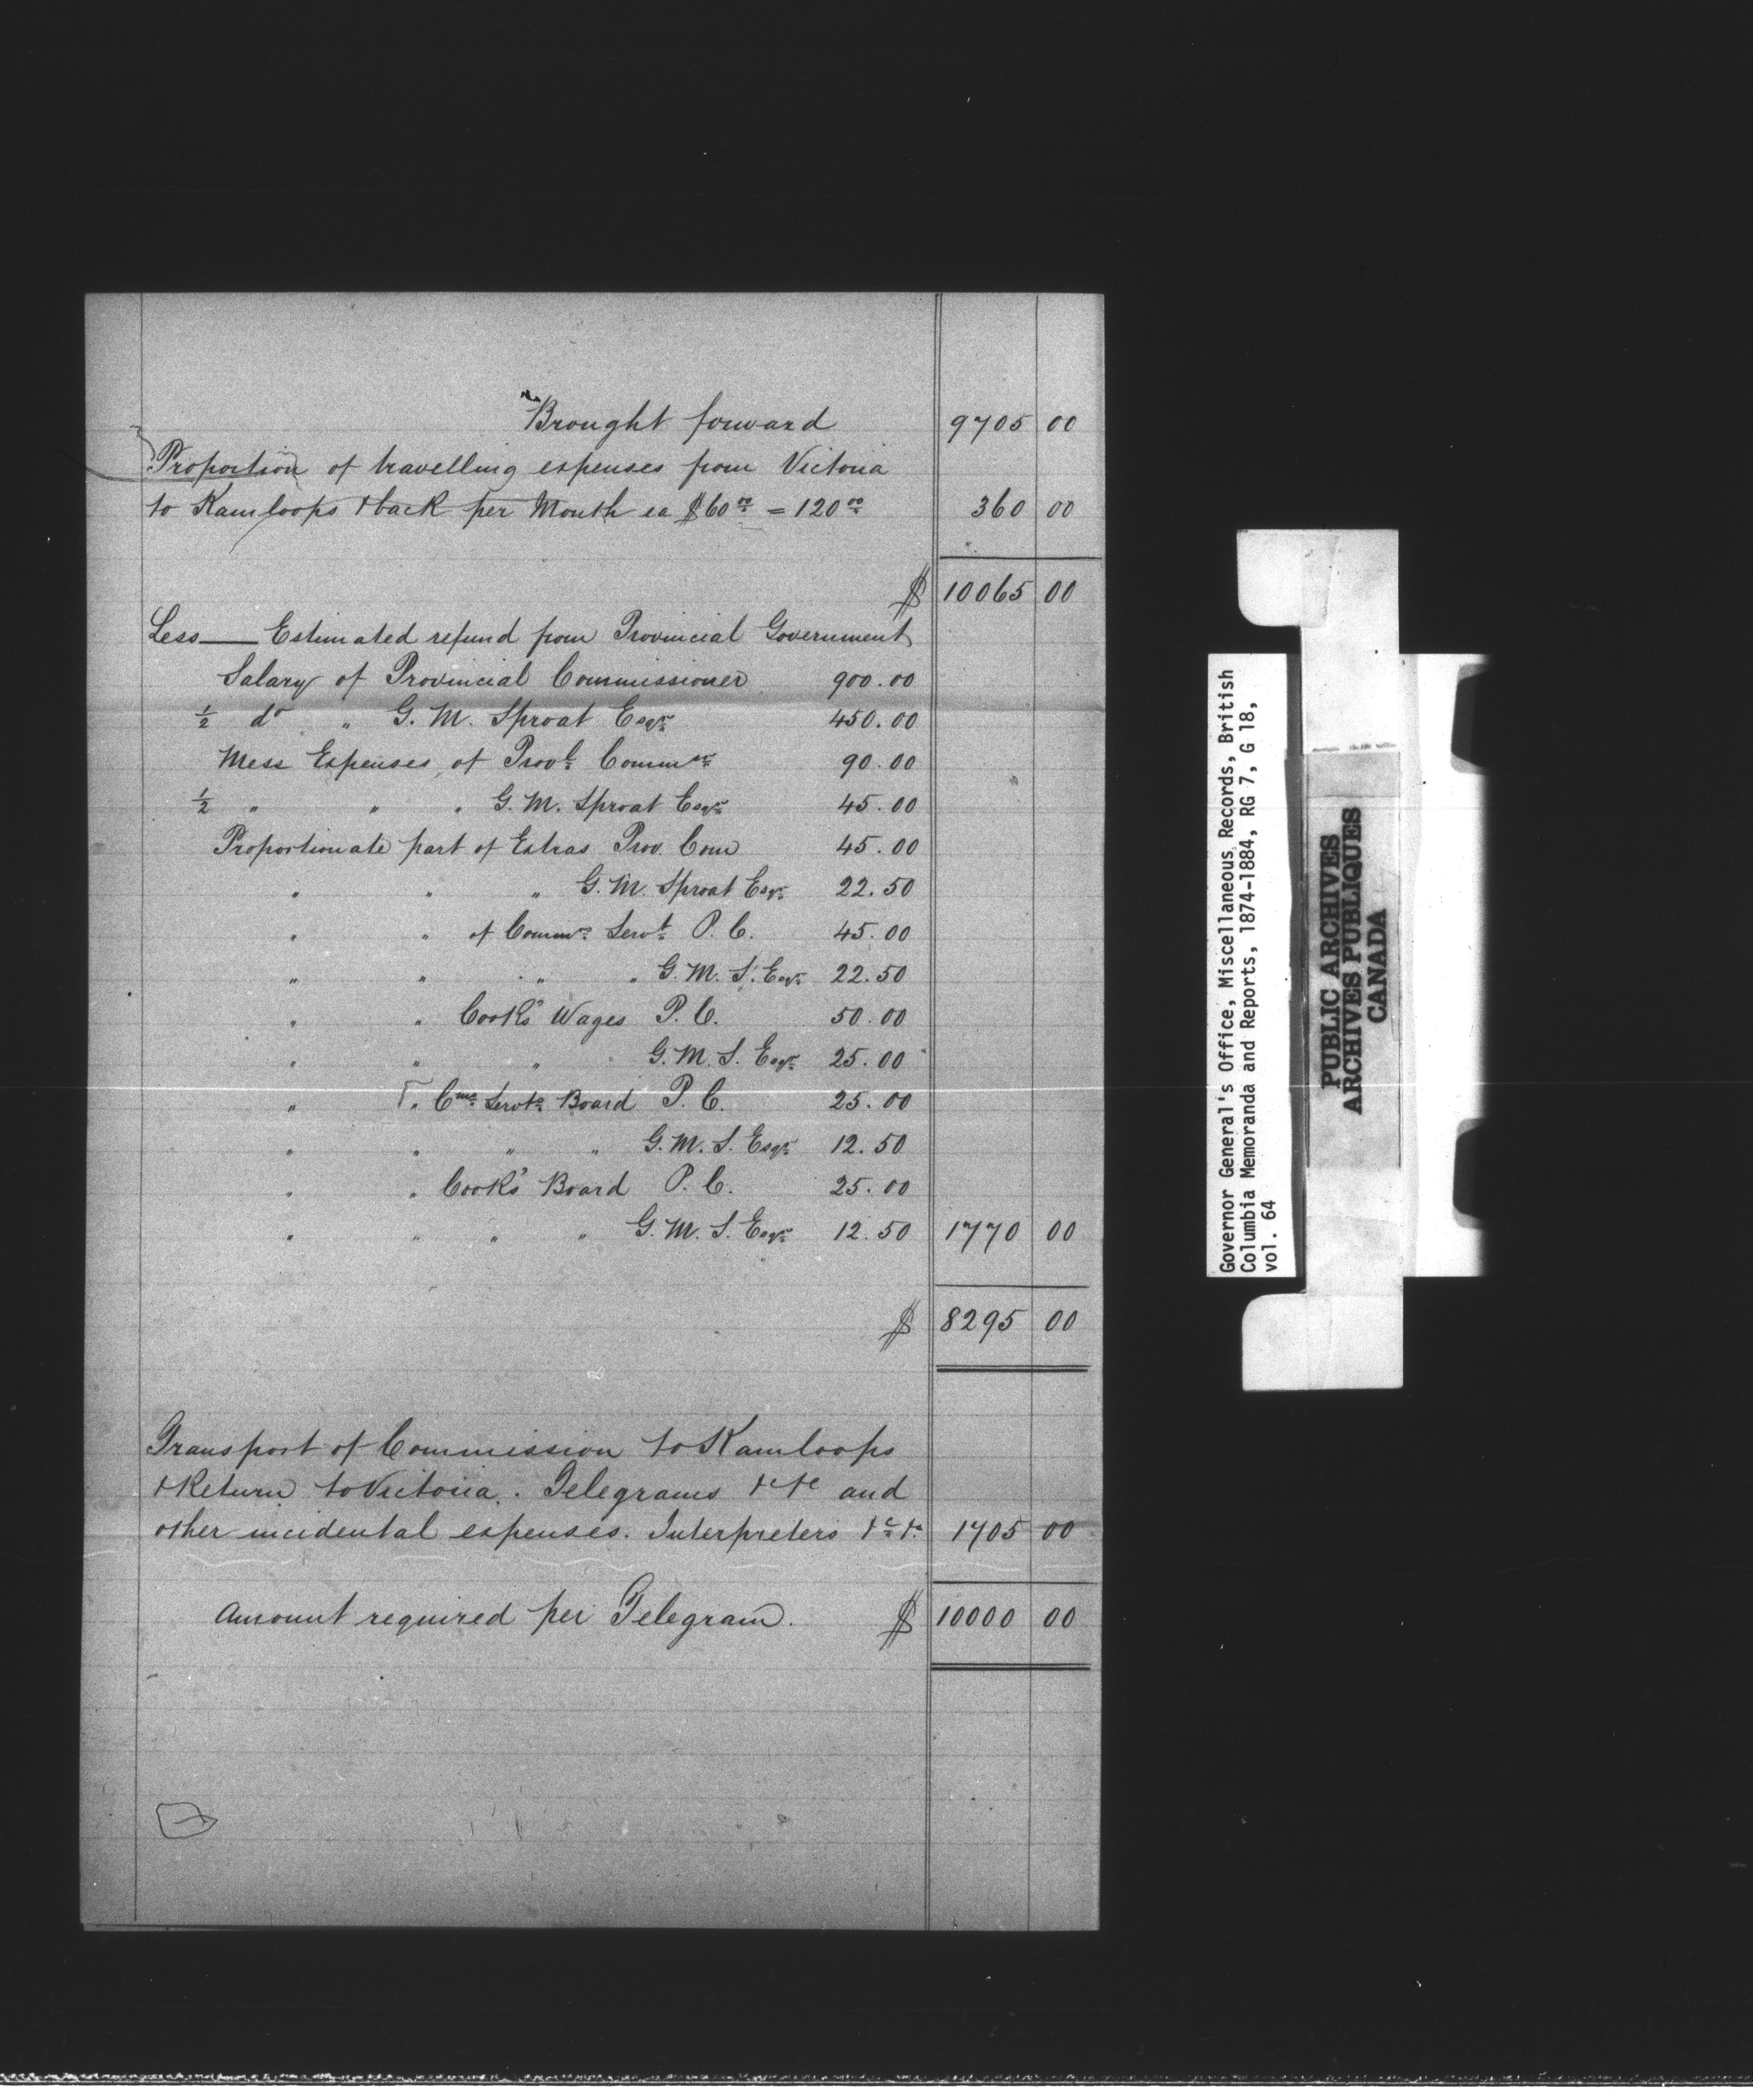 Brought forward 9705 00
Proportion of travelling expenses from Victoria
to Kamloops & back per Month ea $60.00 = 120.00 360 00
$ 10065 00
Less — Estimated refund from Provincial Government
Salary of Provincial Commissioner 900.00
½ do " G. M. Sproat Esqr 450.00
Mess Expenses of Provl Commr 90.00
½ " " " G. M. Sproat Esqr 45.00
Proportionate part of Extras Prov. Com 45.00
" " " G. M. Sproat Esqr 22.50
" " of Commrs Servt P. C. 45.00
" " " " G. M. S. Esqr 22.50
" " Cook's Wages P. C. 50.00
" " " G. M. S. Esqr 25.00
" " Cms Servts Board P. C. 25.00
" " " " G. M. S. Esqr 12.50
" " Cook's Board P. C. 25.00
" " " " G. M. S. Esqr 12.50 1770 00
$ 8295 00
Transport of Commission to Kamloops
& Return to Victoria. Telegrams &c &c and
other incidental expenses. Interpreters &c &c 1705 00
Amount required per Telegram. $ 10000 00
Governor General's Office, Miscellaneous Records, British
Columbia Memoranda and Reports, 1874-1884, RG 7, G 18,
vol. 64
PUBLIC ARCHIVES
ARCHIVES PUBLIQUES
CANADA